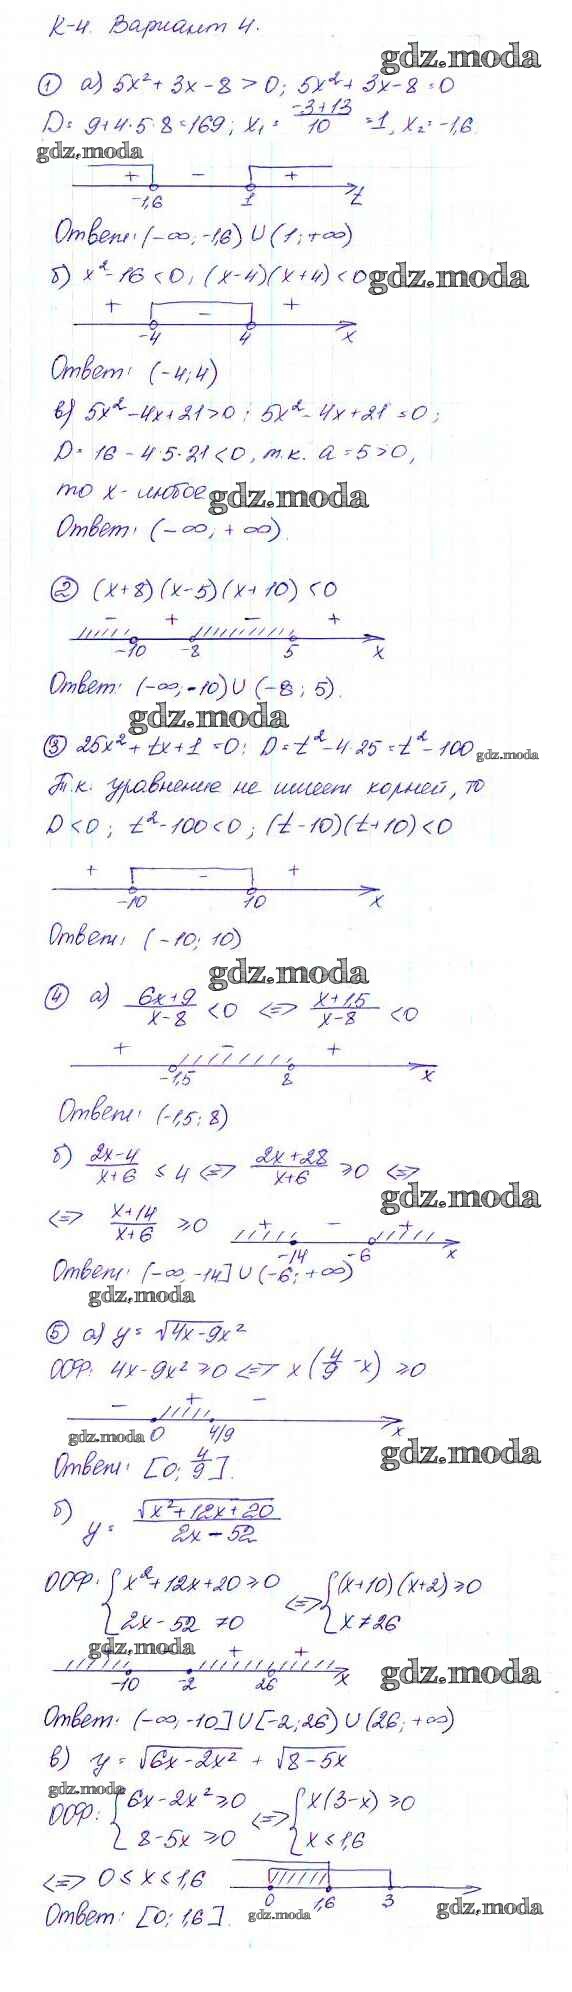 К-4. Вариант 4.
gdz.moda
① а) 5x² + 3x - 8 > 0; 5x² + 3x - 8 = 0
D = 9 + 4·5·8 = 169; x₁ = (-3+13)/10 = 1, x₂ = -1,6.
gdz.moda
+ - +
-1,6 1 t
Ответ: (-∞; -1,6) ∪ (1; +∞)
б) x² - 16 < 0; (x-4)(x+4) < 0
gdz.moda
+ - +
-4 4 x
Ответ: (-4; 4)
в) 5x² - 4x + 21 > 0; 5x² - 4x + 21 = 0;
D = 16 - 4·5·21 < 0, т.к. a = 5 > 0,
то x - любое
gdz.moda
Ответ: (-∞; +∞).
② (x+8)(x-5)(x+10) < 0
- + - +
-10 -8 5 x
Ответ: (-∞; -10) ∪ (-8; 5).
gdz.moda
③ 25x² + tx + 1 = 0; D = t² - 4·25 = t² - 100
gdz.moda
Т.к. уравнение не имеет корней, то
D < 0; t² - 100 < 0; (t-10)(t+10) < 0
+ - +
-10 10 x
Ответ: (-10; 10)
gdz.moda
④ а) (6x+9)/(x-8) < 0 <=> (x+1,5)/(x-8) < 0
+ - +
-1,5 8 x
Ответ: (-1,5; 8)
б) (2x-4)/(x+6) ≤ 4 <=> (2x+28)/(x+6) ≥ 0 <=>
gdz.moda
<=> (x+14)/(x+6) ≥ 0
+ - +
-14 -6 x
Ответ: (-∞; -14] ∪ (-6; +∞)
gdz.moda
⑤ а) y = √(4x-9x²)
ООФ: 4x - 9x² ≥ 0 <=> x(4/9 - x) ≥ 0
- + -
0 4/9 x
gdz.moda
gdz.moda
Ответ: [0; 4/9].
б) y = √(x²+12x+20)/(2x-52)
ООФ: { x² + 12x + 20 ≥ 0 <=> { (x+10)(x+2) ≥ 0
2x - 52 ≠ 0 x ≠ 26
gdz.moda
+ + +
-10 -2 26 x
gdz.moda
Ответ: (-∞; -10] ∪ [-2; 26) ∪ (26; +∞)
в) y = √(6x-2x²) + √(8-5x)
gdz.moda
ООФ: { 6x - 2x² ≥ 0 <=> { x(3-x) ≥ 0
8 - 5x ≥ 0 x ≤ 1,6
<=> 0 ≤ x ≤ 1,6
0 1,6 3
Ответ: [0; 1,6].
gdz.moda
gdz.moda